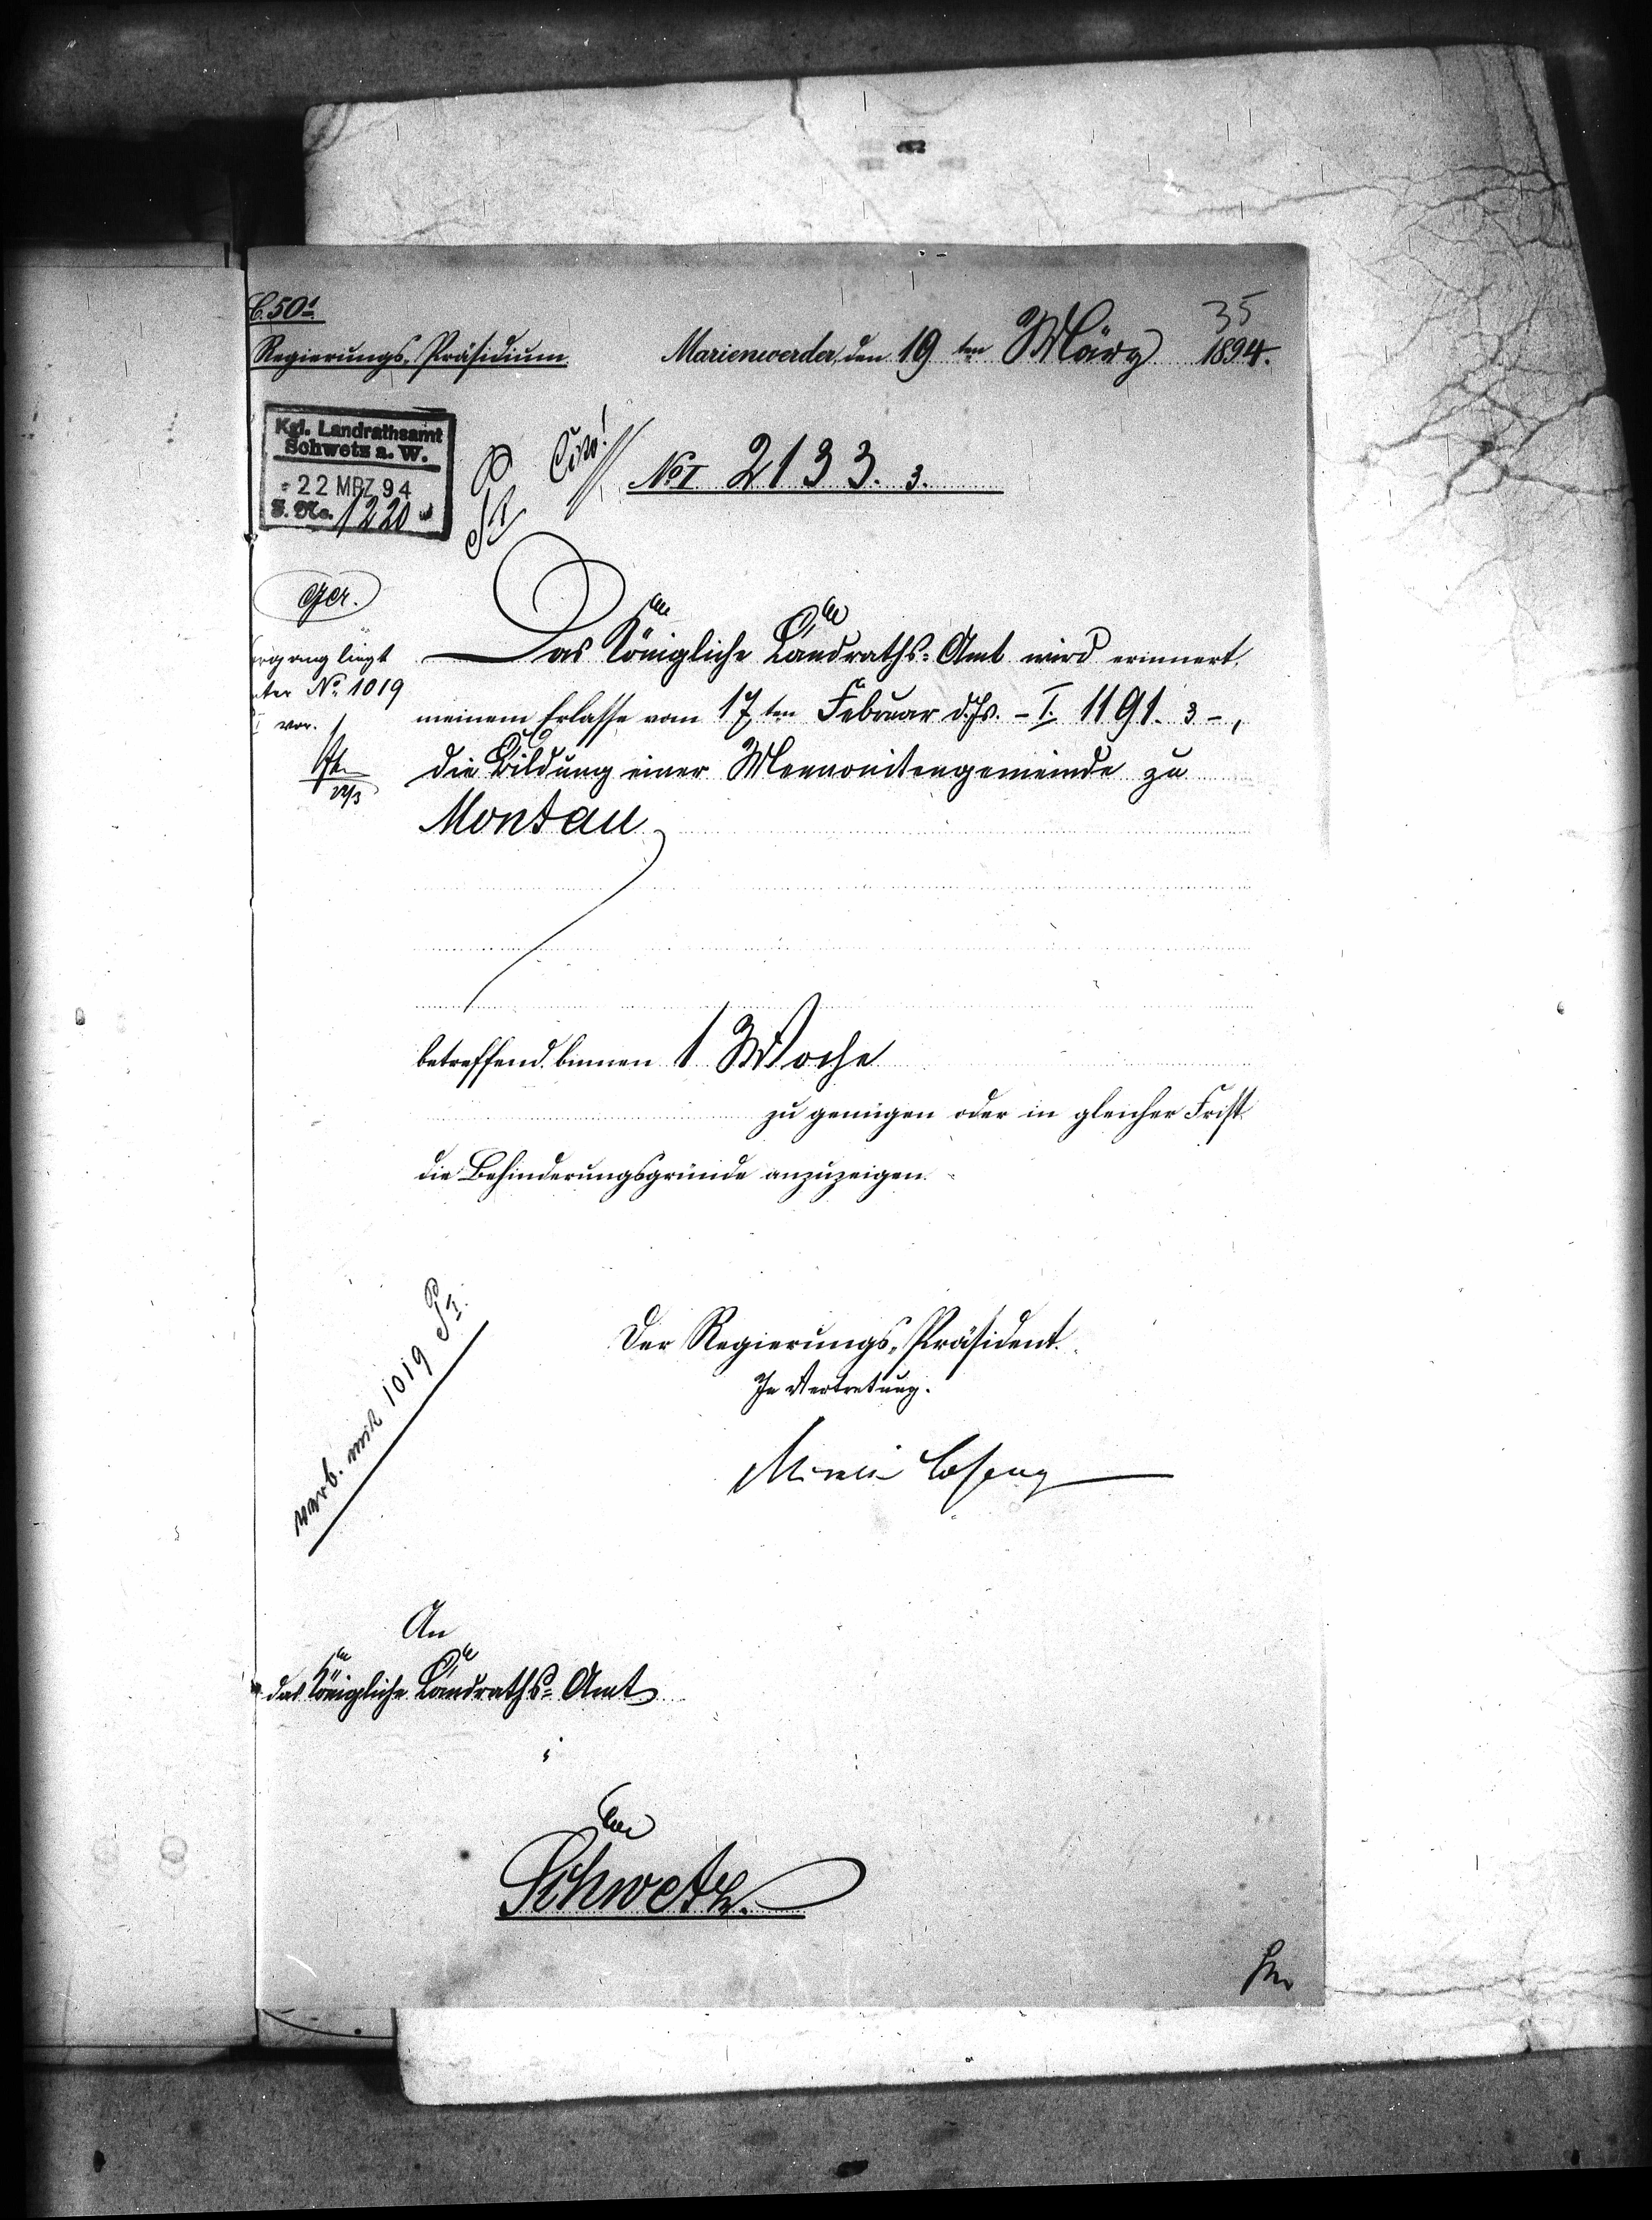 35
C. 50¹
Regierungs-Präsidium
Marienwerder, den 19 ten März 1894.
Kgl. Landrathsamt
Schwetz a. W.
22 MRZ 94
J. No. 1220
Cito!
No I 2133. 3.
Ger.
liegt
No. 1019
vor.
22/3
Das Königliche Landraths-Amt wird erinnert,
meinem Erlasse vom 17 ten Februar d. Js. - I. 1191. 3 -,
die Bildung einer Mennonitengemeinde zu
Montau
betreffend binnen 1 Woche
zu genügen oder in gleicher Frist
die Behinderungsgründe anzuzeigen.
Der Regierungs-Präsident.
In Vertretung.
verb. mit 1019
An
das Königliche Landraths-Amt
Schwetz.